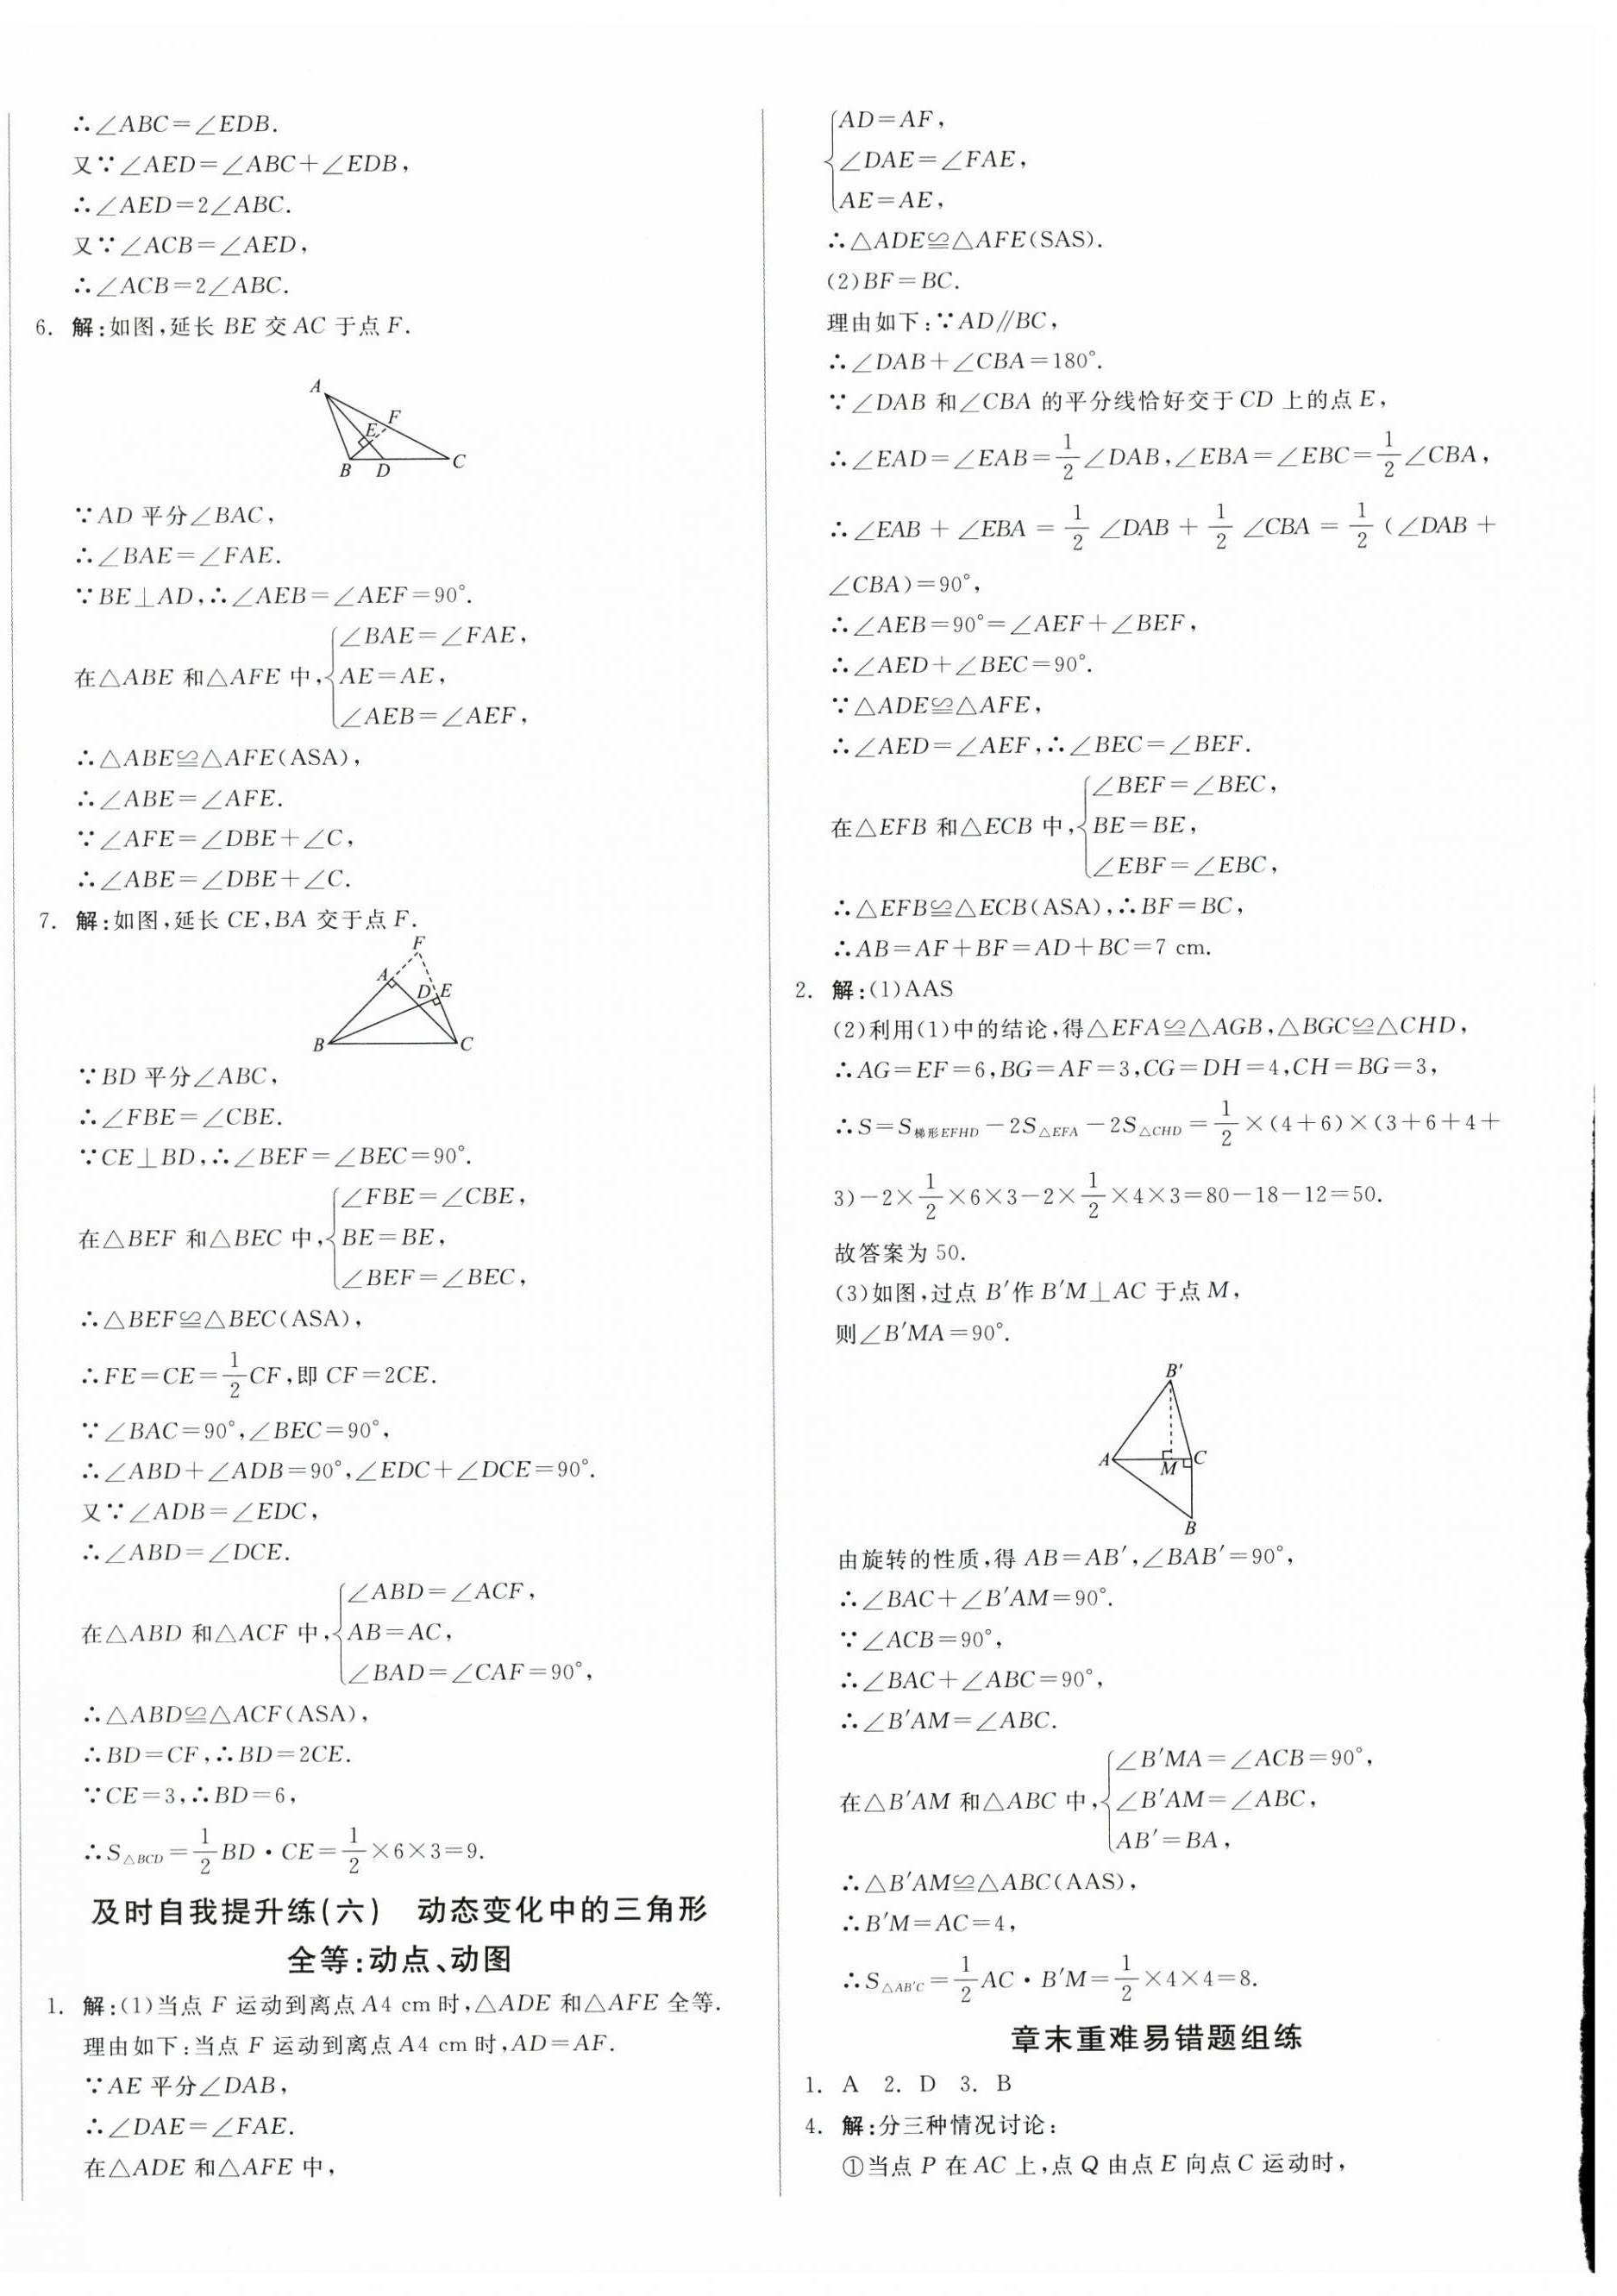 ∴∠ABC=∠EDB.
又∵∠AED=∠ABC+∠EDB,
∴∠AED=2∠ABC.
又∵∠ACB=∠AED,
∴∠ACB=2∠ABC.
6. 解:如图,延长 BE 交 AC 于点 F.
A
F
E
B D C
∵AD 平分∠BAC,
∴∠BAE=∠FAE.
∵BE⊥AD,∴∠AEB=∠AEF=90°.
∠BAE=∠FAE,
在△ABE 和△AFE 中,{AE=AE,
∠AEB=∠AEF,
∴△ABE≌△AFE(ASA),
∴∠ABE=∠AFE.
∵∠AFE=∠DBE+∠C,
∴∠ABE=∠DBE+∠C.
7. 解:如图,延长 CE,BA 交于点 F.
F
A
D E
B C
∵BD 平分∠ABC,
∴∠FBE=∠CBE.
∵CE⊥BD,∴∠BEF=∠BEC=90°.
∠FBE=∠CBE,
在△BEF 和△BEC 中,{BE=BE,
∠BEF=∠BEC,
∴△BEF≌△BEC(ASA),
∴FE=CE=1/2CF,即 CF=2CE.
∵∠BAC=90°,∠BEC=90°,
∴∠ABD+∠ADB=90°,∠EDC+∠DCE=90°.
又∵∠ADB=∠EDC,
∴∠ABD=∠DCE.
∠ABD=∠ACF,
在△ABD 和△ACF 中,{AB=AC,
∠BAD=∠CAF=90°,
∴△ABD≌△ACF(ASA),
∴BD=CF,∴BD=2CE.
∵CE=3,∴BD=6,
∴S△BCD=1/2BD·CE=1/2×6×3=9.
及时自我提升练(六) 动态变化中的三角形
全等:动点、动图
1. 解:(1)当点 F 运动到离点 A4 cm 时,△ADE 和△AFE 全等.
理由如下:当点 F 运动到离点 A4 cm 时,AD=AF.
∵AE 平分∠DAB,
∴∠DAE=∠FAE.
在△ADE 和△AFE 中,
{AD=AF,
∠DAE=∠FAE,
AE=AE,
∴△ADE≌△AFE(SAS).
(2)BF=BC.
理由如下:∵AD∥BC,
∴∠DAB+∠CBA=180°.
∵∠DAB 和∠CBA 的平分线恰好交于 CD 上的点 E,
∴∠EAD=∠EAB=1/2∠DAB,∠EBA=∠EBC=1/2∠CBA,
∴∠EAB+∠EBA=1/2∠DAB+1/2∠CBA=1/2(∠DAB+
∠CBA)=90°,
∴∠AEB=90°=∠AEF+∠BEF,
∴∠AED+∠BEC=90°.
∵△ADE≌△AFE,
∴∠AED=∠AEF,∴∠BEC=∠BEF.
∠BEF=∠BEC,
在△EFB 和△ECB 中,{BE=BE,
∠EBF=∠EBC,
∴△EFB≌△ECB(ASA),∴BF=BC,
∴AB=AF+BF=AD+BC=7 cm.
2. 解:(1)AAS
(2)利用(1)中的结论,得△EFA≌△AGB,△BGC≌△CHD,
∴AG=EF=6,BG=AF=3,CG=DH=4,CH=BG=3,
∴S=S梯形EFHD-2S△EFA-2S△CHD=1/2×(4+6)×(3+6+4+
3)-2×1/2×6×3-2×1/2×4×3=80-18-12=50.
故答案为 50.
(3)如图,过点 B′作 B′M⊥AC 于点 M,
则∠B′MA=90°.
B′
A M C
B
由旋转的性质,得 AB=AB′,∠BAB′=90°,
∴∠BAC+∠B′AM=90°.
∵∠ACB=90°,
∴∠BAC+∠ABC=90°,
∴∠B′AM=∠ABC.
∠B′MA=∠ACB=90°,
在△B′AM 和△ABC 中,{∠B′AM=∠ABC,
AB′=BA,
∴△B′AM≌△ABC(AAS),
∴B′M=AC=4,
∴S△AB′C=1/2AC·B′M=1/2×4×4=8.
章末重难易错题组练
1. A 2. D 3. B
4. 解:分三种情况讨论:
①当点 P 在 AC 上,点 Q 由点 E 向点 C 运动时,